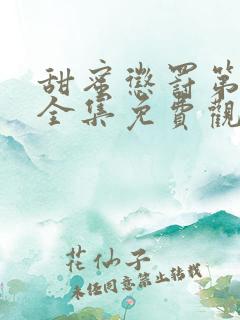 甜蜜懲罰第
全集免費觀
花仙子
未经同意禁止转载